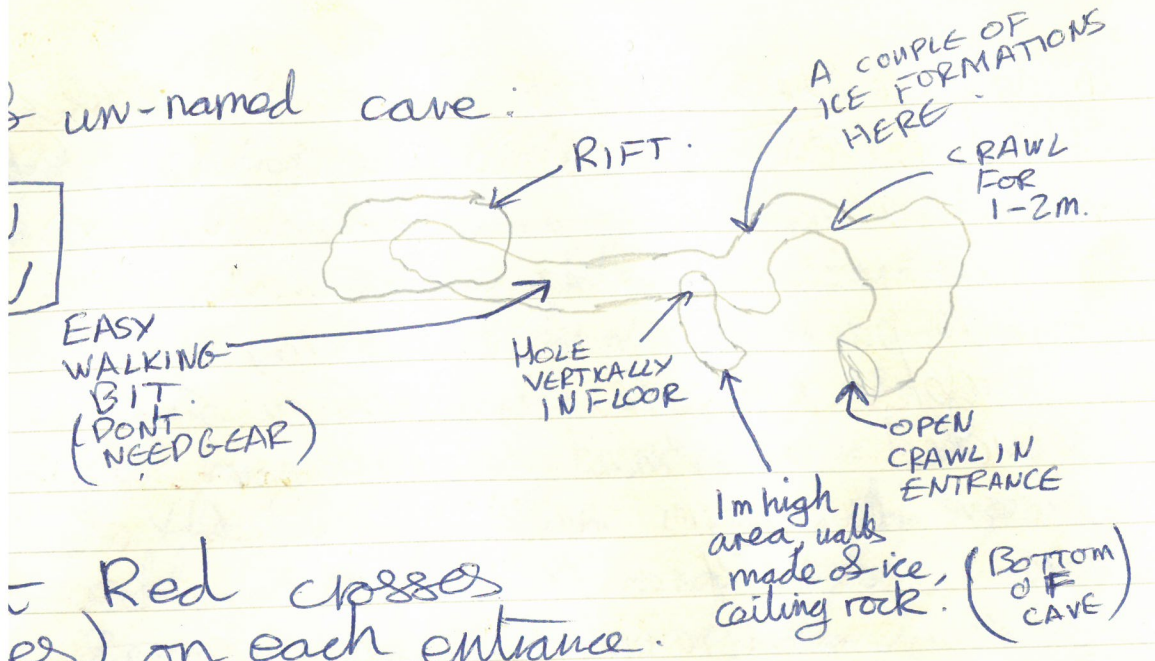 un-named cave:
A COUPLE OF
ICE FORMATIONS
HERE.
RIFT.
CRAWL
FOR
1-2m.
EASY
WALKING
BIT.
(DONT
NEED GEAR)
HOLE
VERTICALLY
IN FLOOR
OPEN
CRAWL IN
ENTRANCE
1m high
area, walls
made of ice,
ceiling rock.
(BOTTOM
OF
CAVE)
- Red crosses
) on each entrance.